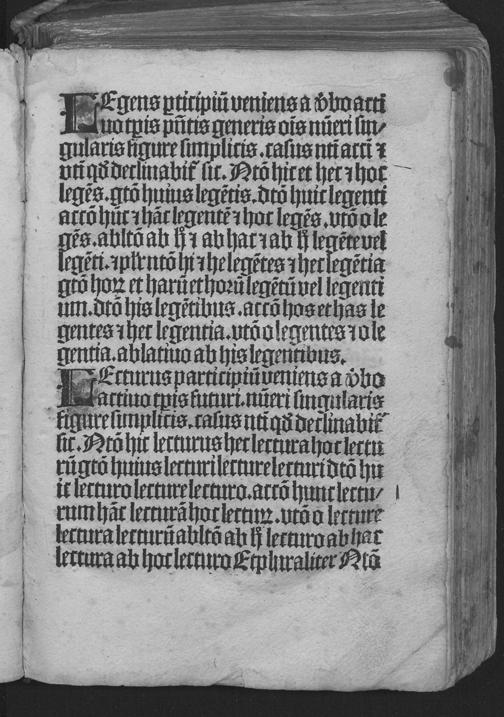 LEgens pticipiũ veniens a v̾bo acti
uo tꝑis pñtis generis oĩs nũeri sin/
gularis figure simplicis. casus nti accĩ ⁊
vti q̃ declinabit᷑ sic. Ntõ hic et hec ⁊ hoc
legẽs. gtõ huius legẽtis. dtõ huic legenti
accõ hũc ⁊ hãc legentẽ ⁊ hoc legẽs. vtõ o le
gẽs. abltõ ab h̃ ⁊ ab hac ⁊ ab h̃ legẽte vel
legẽti. ⁊ plr̃ ntõ hi ⁊ he legẽtes ⁊ hec legẽtia
gtõ hoꝝ et harũ et horũ legẽtũ vel legenti
um. dtõ his legẽtibus. accõ hos et has le
gentes ⁊ hec legentia. vtõ o legentes ⁊ o le
gentia. ablatiuo ab his legentibus.
LEcturus participiũ veniens a v̾bo
actiuo tꝑis futuri. nũeri singularis
figure simplicis. casus nti q̃ declinabit᷑
sic. Ntõ hic lecturus hec lectura hoc lectu
rũ gtõ huius lecturi lecture lecturi dtõ hu
ic lecturo lecture lecturo. accõ hunc lectu/
rum hãc lecturã hoc lectuꝝ. vtõ o lecture
lectura lecturũ abltõ ab h̃ lecturo ab hac
lectura ab hoc lecturo Et pluraliter Ntõ